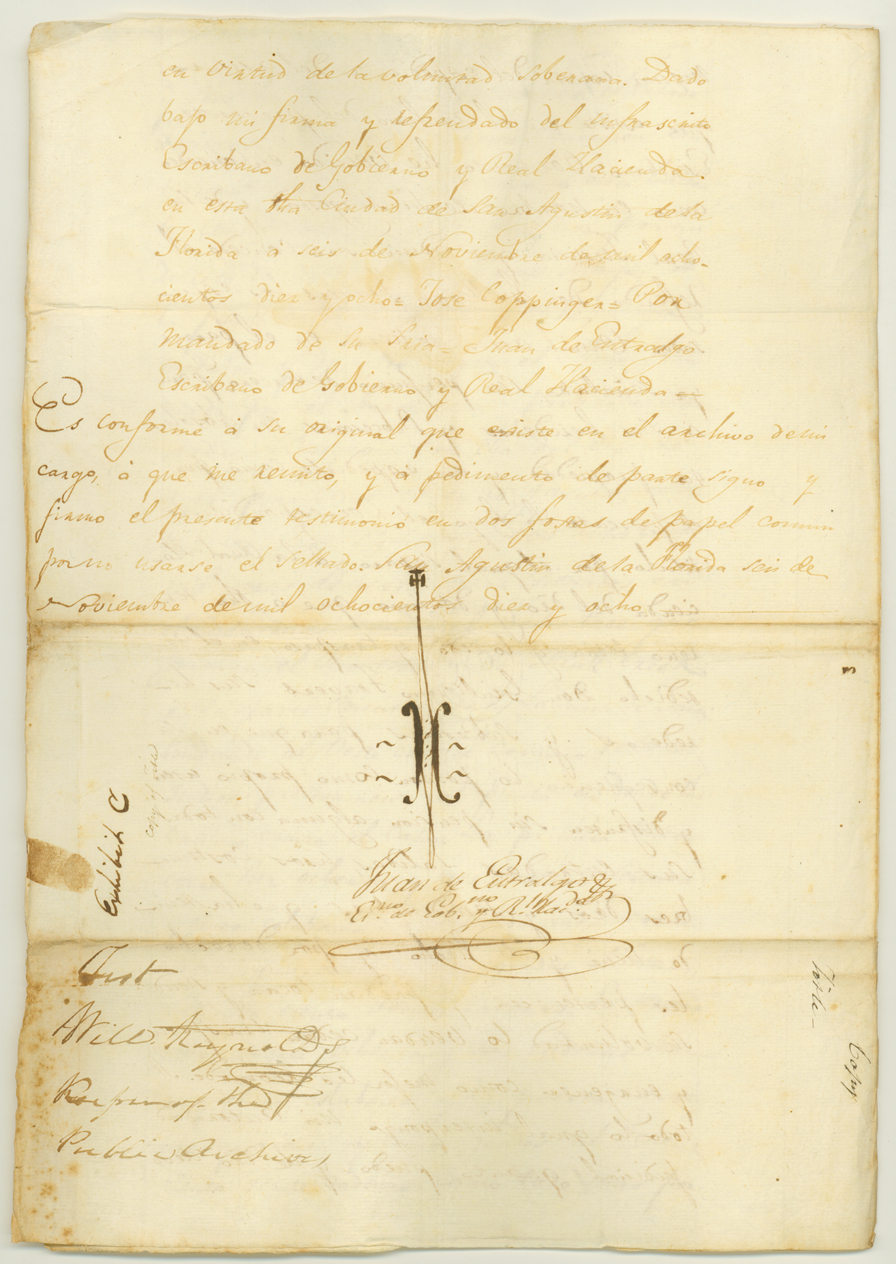 en virtud de la voluntad soberana. Dado
bajo mi firma y refrendado del infrascrito
Escribano de Gobierno y Real Hacienda.
en esta tha Ciudad de San Agustin de la
Florida à seis de Noviembre de mil ocho-
cientos diez y ocho = Jose Coppinger = Por
mandado de su Sria = Juan de Entralgo
Escribano de Gobierno y Real Hacienda =
Es conforme à su original que existe en el archivo de mi
cargo, à que me remito, y à pedimento de parte signo y
firmo el presente testimonio en dos foxas de papel comun
por no usarse el sellado. San Agustin de la Florida seis de
Noviembre de mil ochocientos diez y ocho
Juan de Entralgo
Esno. de Gobno. y Rl. Hazda.
Exhibit C
copy of title
Test
Will Reynolds
Keeper of the
Public Archives
Title
Copy